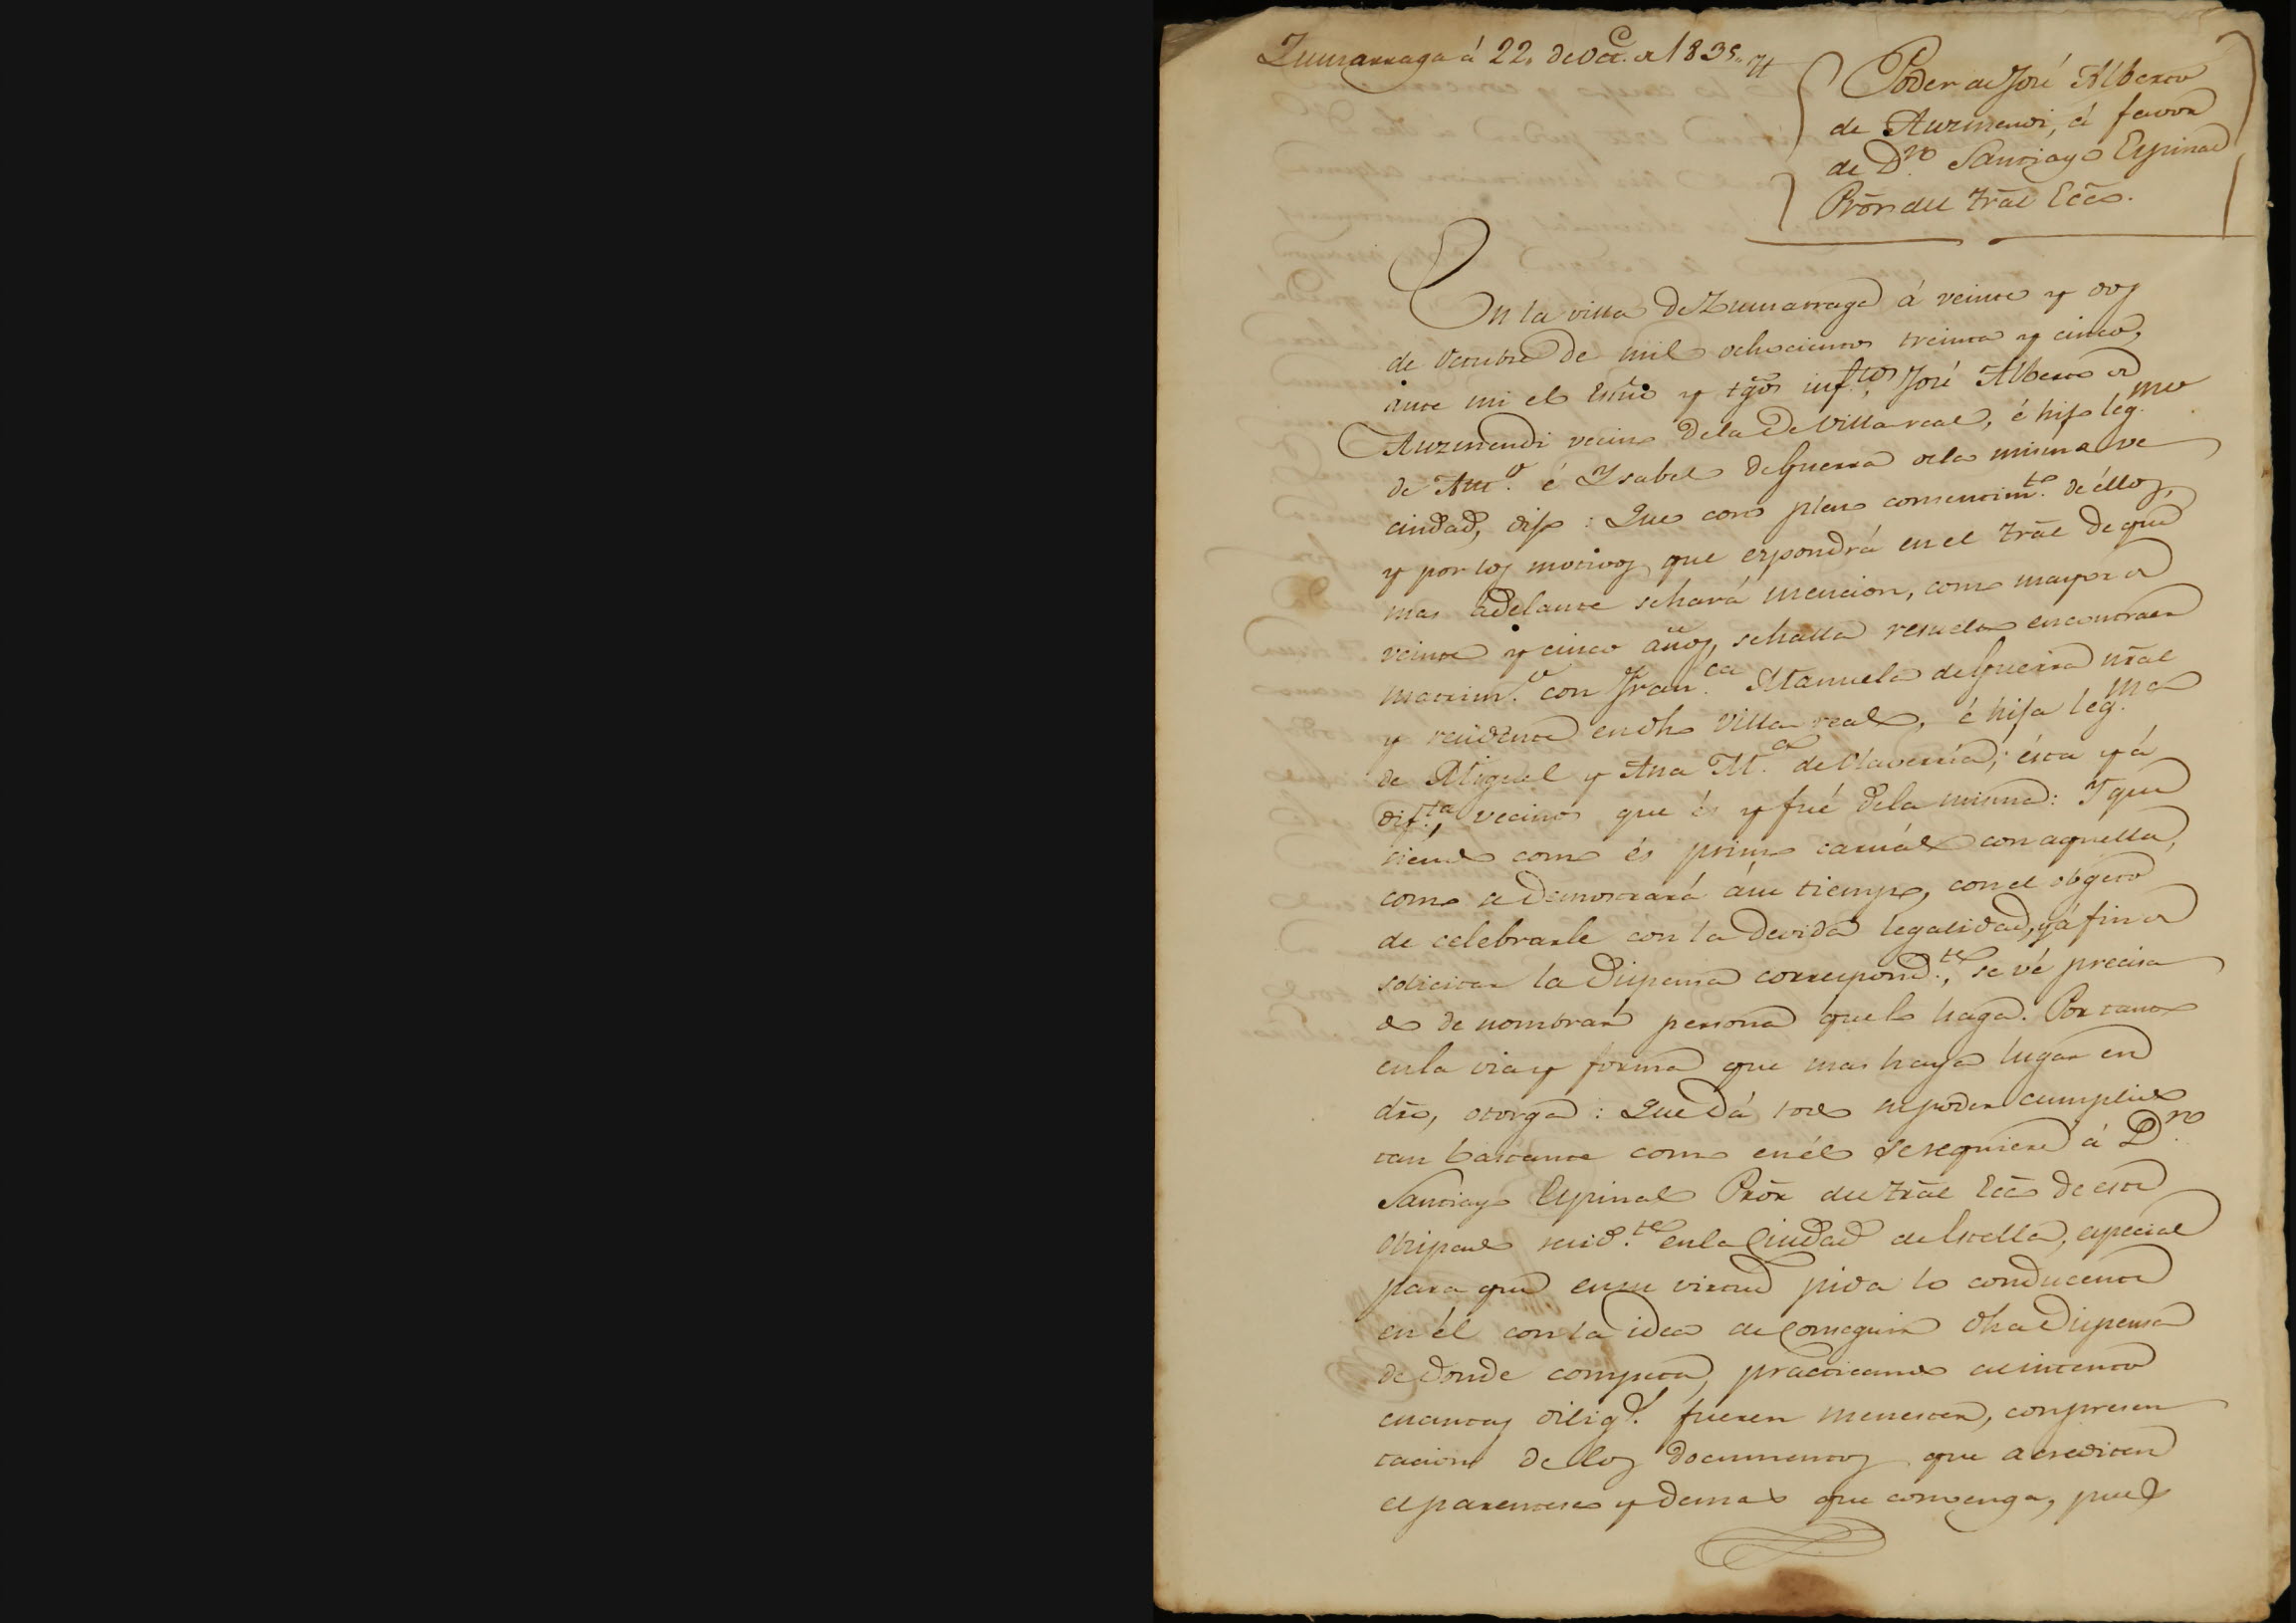 Zumarraga á 22, de Oct.e de 1835,,
Poder de José Alberto
de Auzmendi, á favor
de D.n Santiago Espinal
Prõr del Trãl Ecc̃o.
En la villa de Zumarraga á veinte y dos
de Octubre de mil ochocientos treinta y cinco,
ante mi el Essño y tgõs inf.tos, José Alberto de
Auzmendi vecino de la de Villa real, é hijo leg.mo
de Ant.o é Ysabel de Guerra de la misma ve
cindad, dijo: Que con pleno consentim.to de éllos,
y por los motivos que espondrá en el Trãl de que
mas adelante se hará mencion, como mayor de
veinte y cinco años, se halla resuelto en contraer
matrim.o con Fran.ca Manuela de Guerra nr̃al
y residente en dh̃o Villa real, é hija leg.ma
de Miguel y Ana M.a de Olaverría; ésta y á
dif.ta, vecinos que és y fué de la misma: Y que
siendo como és primo carnál con aquella,
como se demostrará á su tiempo, con el obgeto
de celebrarle con la devida legalidad, y á fin de
solicitar la Dispensa correspond.te, se vé precisa
do de nombrar persona que lo haga. Por tanto
en la via y forma que mas haya lugar en
dr̃o, otorga: Que dá todo su poder cumplido
tan bastante como en él se requiere á D.n
Santiago Espinal Prõr del Trãl Ecc̃o de este
Obispado resid.te en la Ciudad de Estella, especial
para que en su virtud pida lo conducente
en él con la idea de conseguir dh̃a Dispensa
de donde competa, practicando al intento
cuantas dilig.s fueren menester, con presen
tacion de los documentos que acrediten
el parentesco y demas que convenga, pues